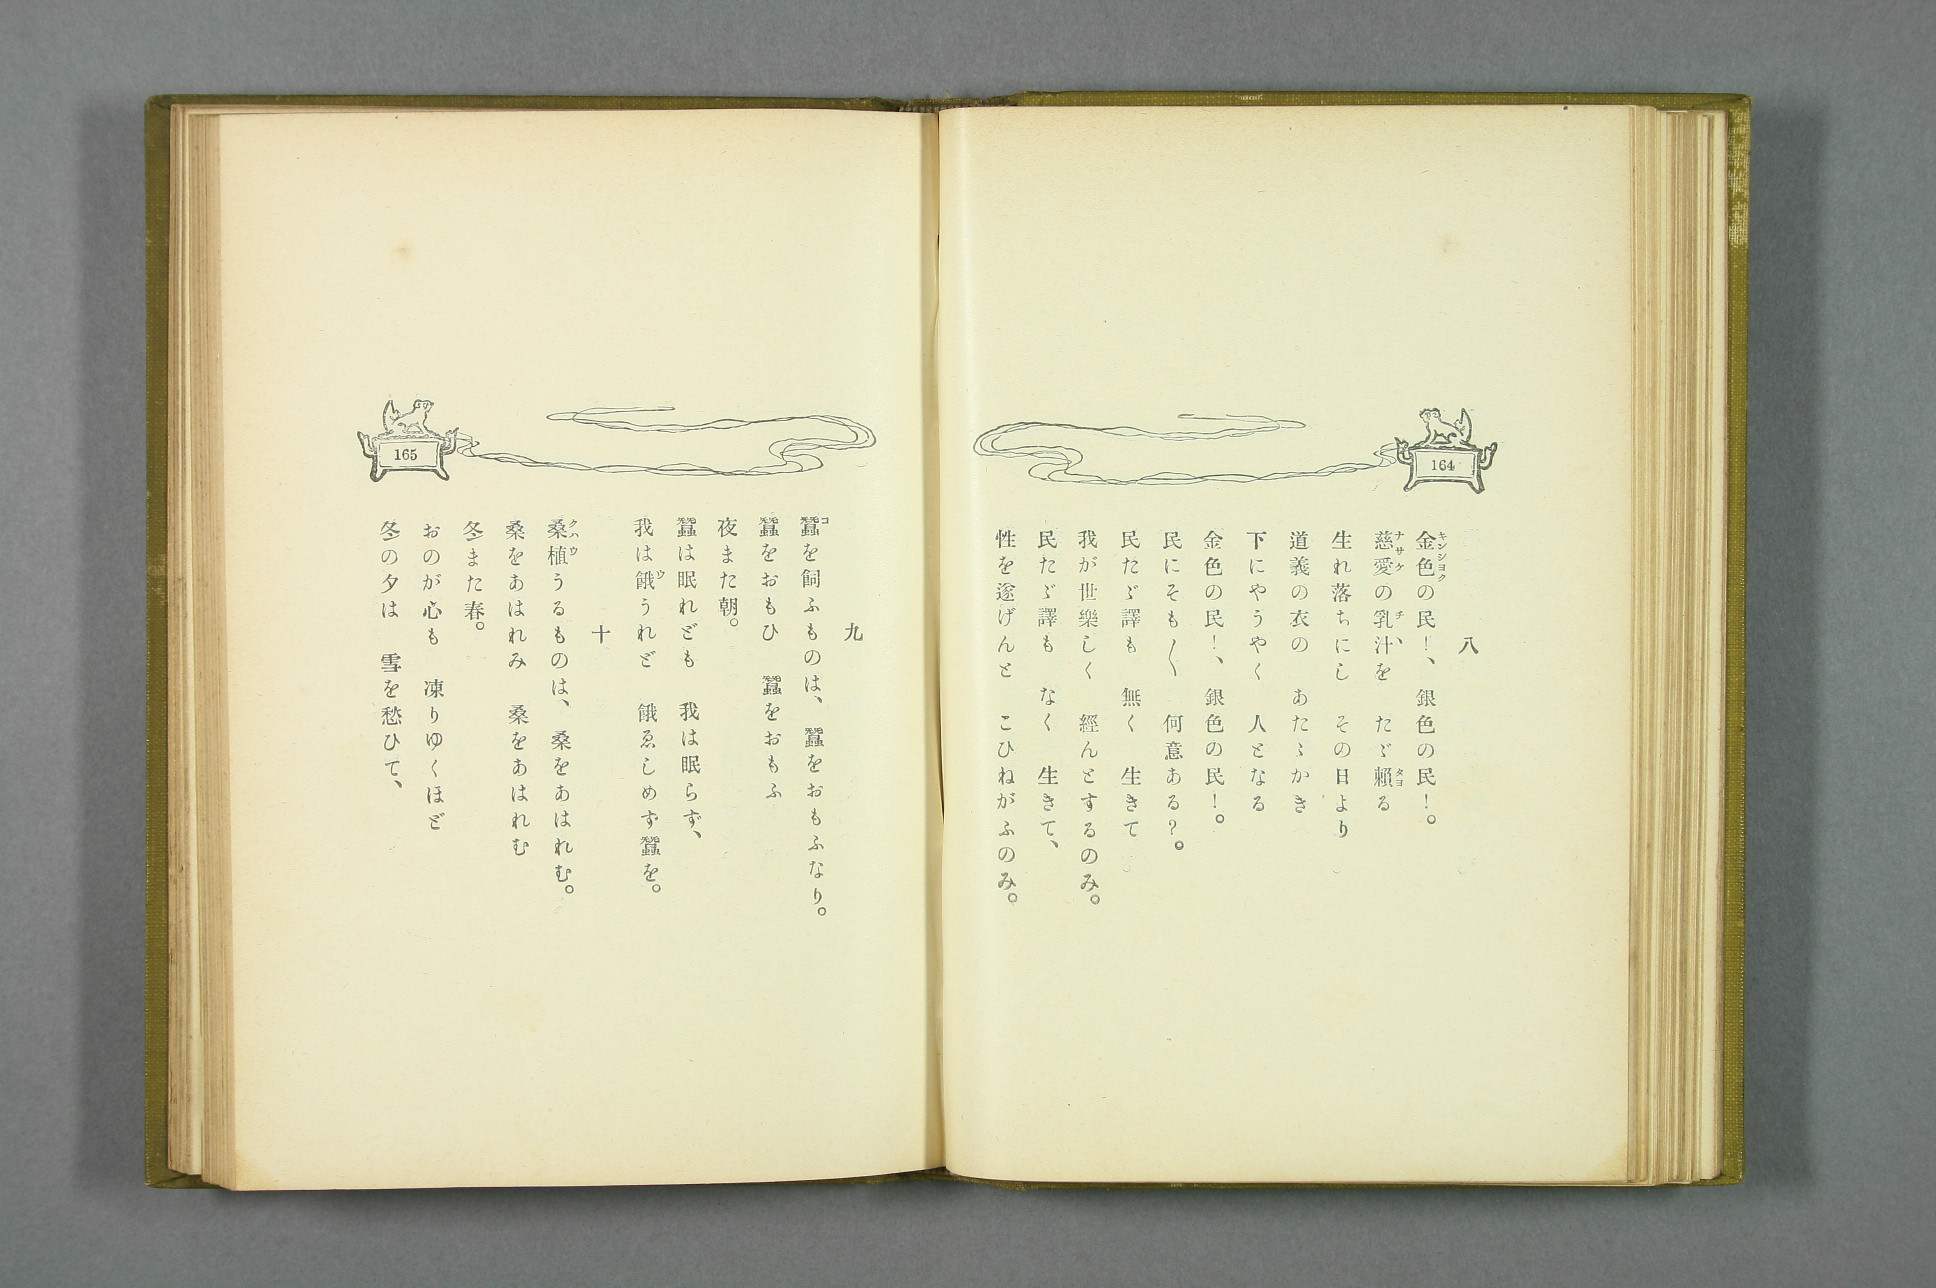 164
八
金色の民！、銀色の民！。
キンシヨク
慈愛の乳汁を　たゞ賴る
ナサケ　チヽ　タヨ
生れ落ちにし　その日より
道義の衣の　あたゝかき
下にやうやく　人となる
金色の民！、銀色の民！。
民にそも〳〵　何意ある？。
民たゞ譯も　無く　生きて
我が世樂しく　經んとするのみ。
民たゞ譯も　なく　生きて、
性を遂げんと　こひねがふのみ。
165
九
蠶を飼ふものは、蠶をおもふなり。
コ
蠶をおもひ　蠶をおもふ
夜また朝。
蠶は眠れども　我は眠らず、
我は餓うれど　餓ゑしめず蠶を。
ウ
十
桑植うるものは、桑をあはれむ。
クハウ
桑をあはれみ　桑をあはれむ
冬また春。
おのが心も　凍りゆくほど
冬の夕は　雪を愁ひて、